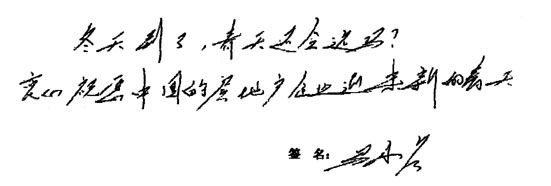 冬天到了，春天还会远吗？
衷心祝愿中国的房地产企业迎来新的春天
签名：